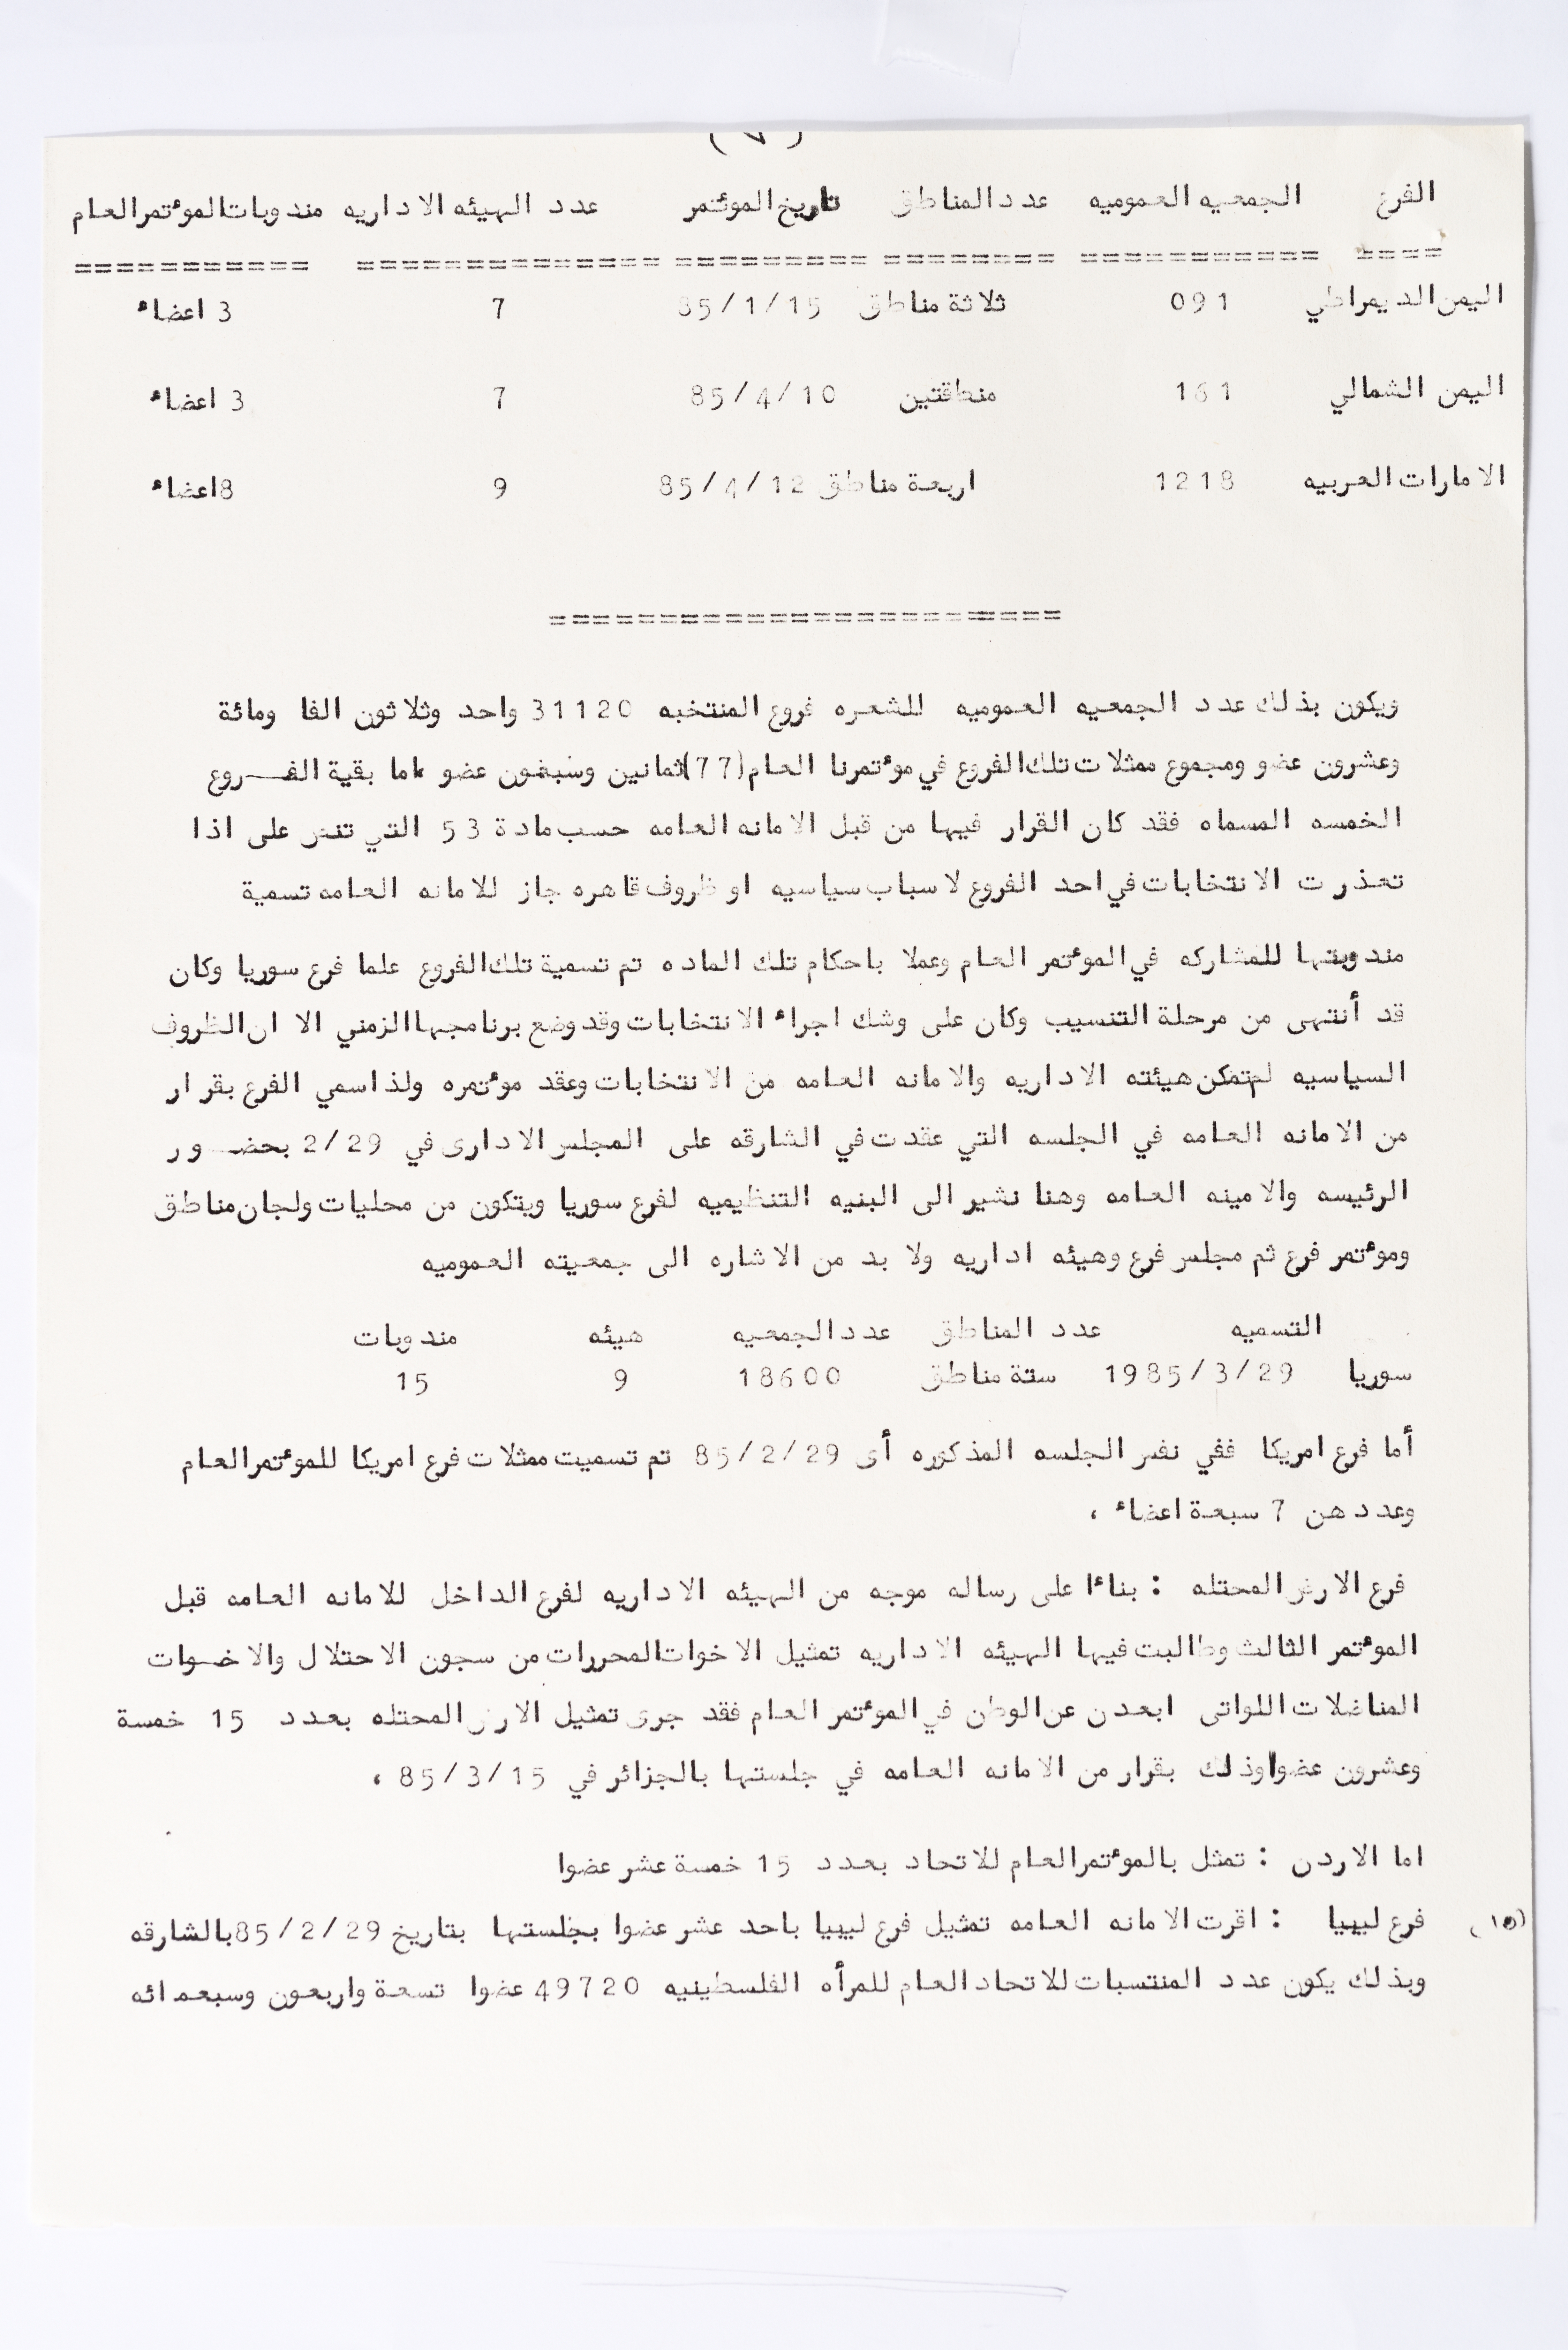 (٧)
الفرع الجمعيه العموميه عدد المناطق تاريخ الموئتمر عدد الهيئه الاداريه مندوبات الموئتمر العام
==== =========== ======== ========= ============== ===========
اليمن الديمراطي 091 ثلاثة مناطق 85/1/15 7 3 اعضاء
اليمن الشمالي 161 منطقتين 85/4/10 7 3 اعضاء
الامارات العربيه 1218 اربعة مناطق 85/4/12 9 8 اعضاء
========================
ويكون بذلك عدد الجمعيه العموميه للشعره فروع المنتخبه 31120 واحد وثلاثون الفا ومائة
وعشرون عضو ومجموع ممثلات تلك الفروع في موئتمرنا العام (77) ثمانين وسبعون عضو ، اما بقية الفــروع
الخمسه المسماه فقد كان القرار فيها من قبل الامانه العامه حسب مادة 53 التي تنص على اذا
تعذرت الانتخابات في احد الفروع لاسباب سياسيه او ظروف قاهره جاز للامانه العامه تسمية
مندوبتها للمشاركه في الموئتمر العام وعملا باحكام تلك الماده تم تسمية تلك الفروع علما فرع سوريا وكان
قد أنتهى من مرحلة التنسيب وكان على وشك اجراء الانتخابات وقد وضع برنامجها الزمني الا ان الظروف
السياسيه لم تمكن هيئته الاداريه والامانه العامه من الانتخابات وعقد موئتمره ولذا سمي الفرع بقرار
من الامانه العامه في الجلسه التي عقدت في الشارقه على المجلس الادارى في 2/29 بحضــور
الرئيسه والامينه العامه وهنا نشير الى البنيه التنظيميه لفرع سوريا ويتكون من محليات ولجان مناطق
وموئتمر فرع ثم مجلس فرع وهيئه اداريه ولا بد من الاشاره الى جمعيته العموميه
التسميه عدد المناطق عدد الجمعيه هيئه مندوبات
سوريا 1985/3/29 ستة مناطق 18600 9 15
أما فرع امريكا ففي نفس الجلسه المذكوره أى 85/2/29 تم تسميت ممثلات فرع امريكا للموئتمر العام
وعددهن 7 سبعة اعضاء ،
فرع الارض المحتله : بناءا على رساله موجه من الهيئه الاداريه لفرع الداخل للامانه العامه قبل
الموئتمر الثالث وطالبت فيها الهيئه الاداريه تمثيل الاخوات المحررات من سجون الاحتلال والاخــوات
المناضلات اللواتى ابعدن عن الوطن في الموئتمر العام فقد جرى تمثيل الارض المحتله بعدد 15 خمسة
وعشرون عضوا وذلك بقرار من الامانه العامه في جلستها بالجزائر في 85/3/15 ،
اما الاردن : تمثل بالموئتمر العام للاتحاد بعدد 15 خمسة عشر عضوا
(١٥) فرع ليبيا : اقرت الامانه العامه تمثيل فرع ليبيا باحد عشر عضوا بجلستها بتاريخ 85/2/29 بالشارقه
وبذلك يكون عدد المنتسبات للاتحاد العام للمرأه الفلسطينيه 49720 عضوا تسعة واربعون وسبعمائه